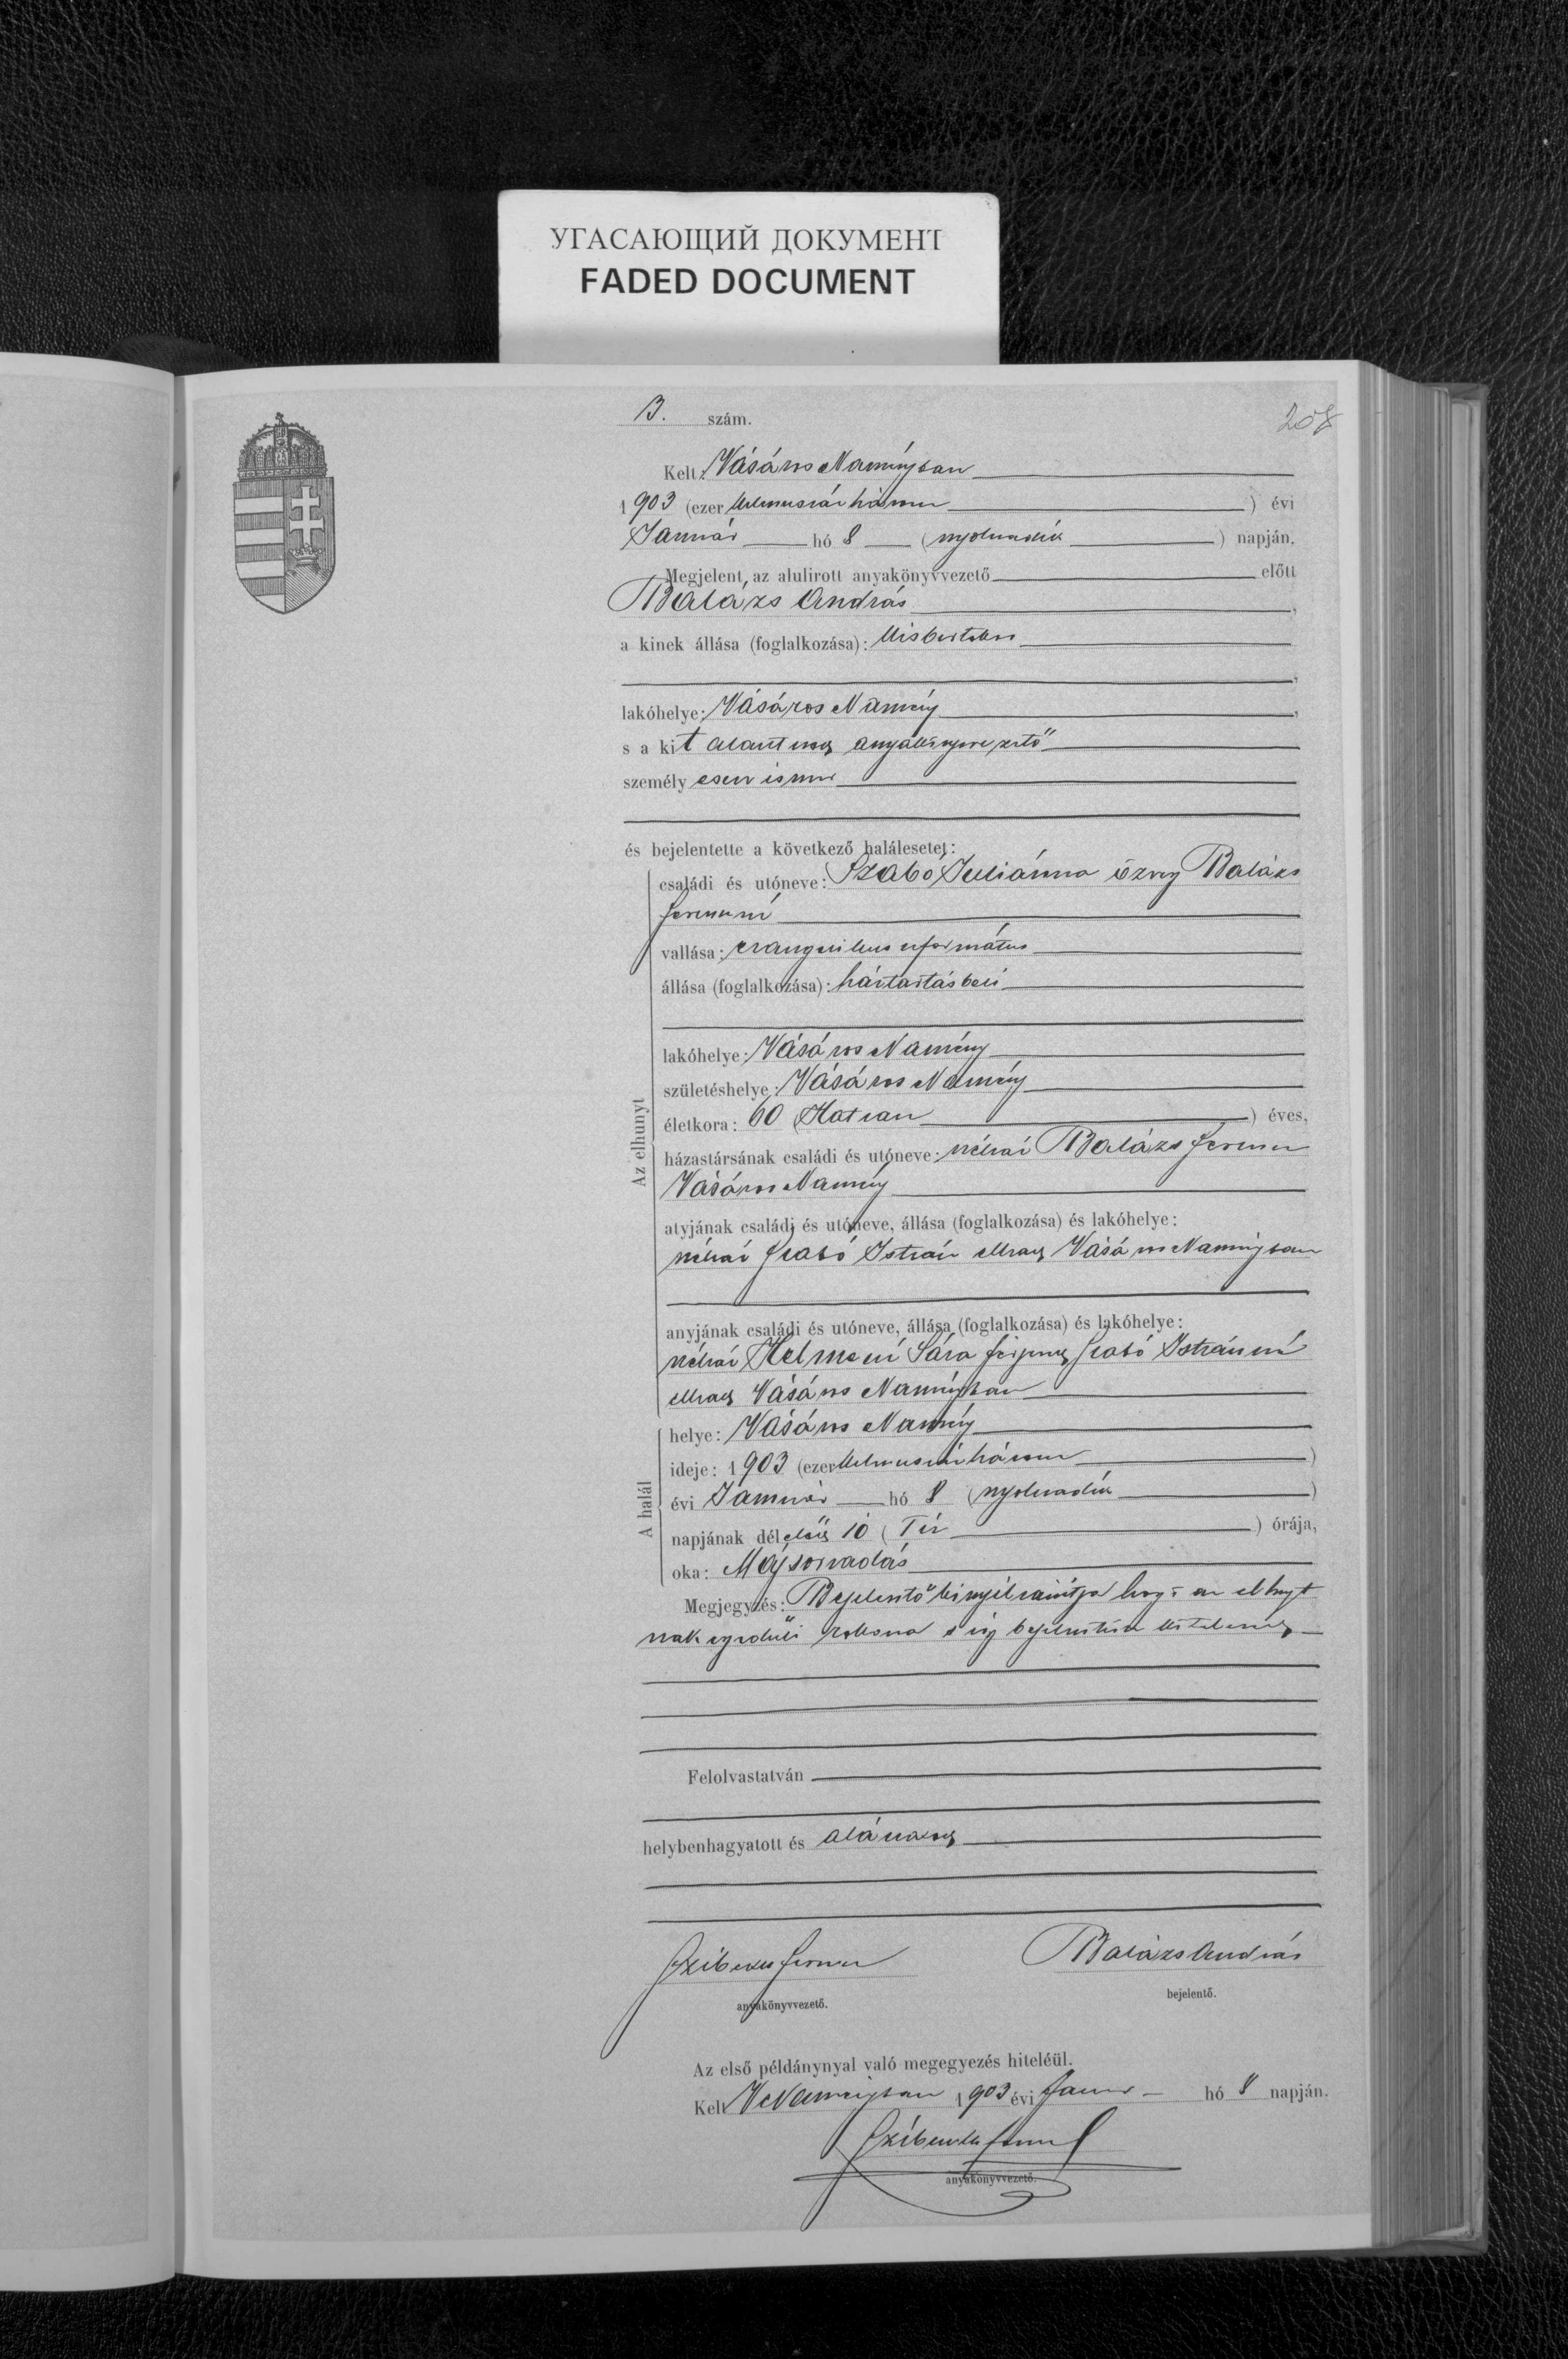 УГАСАЮЩИЙ ДОКУМЕНТ
FADED DOCUMENT
3. szám.
208
Kelt: Vásáros Naményban
1903 (ezer kilenczszázhárom) évi
Január hó 8 (nyolczadik) napján.
Megjelent az alulirott anyakönyvvezető előtt
Balázs András,
a kinek állása (foglalkozása): kisbirtokos
lakóhelye: Vásáros Namény,
s a kit alantirott anyakönyvvezető
személyesen ismer
és bejelentette a következő halálesetet:
Az elhunyt
családi és utóneve: Szabó Juliánna özvegy Balázs
Ferenczné
vallása: evangelikus református
állása (foglalkozása): háztartásbeli
lakóhelye: Vásáros Namény
születéshelye: Vásáros Namény
életkora: 60 (Hatvan) éves,
házastársának családi és utóneve: néhai Balázs Ferencz
Vásáros Namény
atyjának családi és utóneve, állása (foglalkozása) és lakóhelye:
néhai Szabó István elhalt Vásáros Naményban
anyjának családi és utóneve, állása (foglalkozása) és lakóhelye:
néhai Helmeczi Sára férjezett Szabó Istvánné
elhalt Vásáros Naményban
A halál
helye: Vásáros Namény
ideje: 1903 (ezer kilenczszázhárom)
évi Január hó 8 (nyolczadik)
napjának délelőtt 10 (Tíz) órája,
oka: Májsorvadás
Megjegyzés: Bejelentő kinyilvánítja hogy az elhuyt
nak egyedüli rokona s így bejelentésre kötelezett
Felolvastatván
helybenhagyatott és aláíratott
Ferencz
anyakönyvvezető.
Balázs András
bejelentő.
Az első példánynyal való megegyezés hiteléül.
Kelt VNaményban 1903 évi Január hó 8 napján.
anyakönyvvezető.